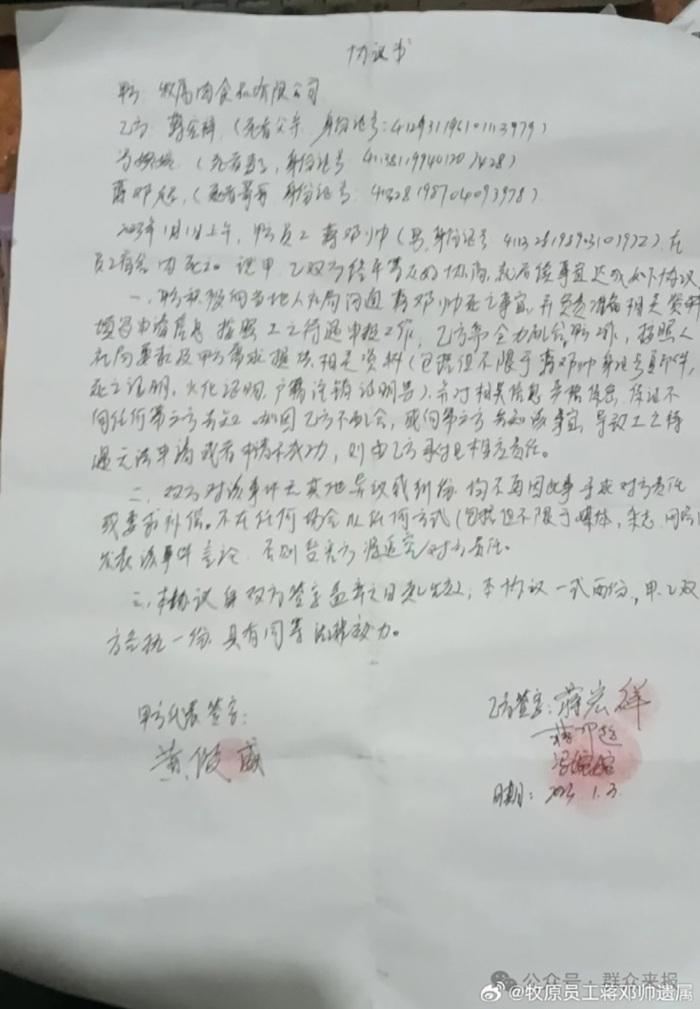 协议书
甲方：牧原肉食品有限公司
乙方：蒋宏祥（死者父亲，身份证号：412931196101113979）
（死者妻子，身份证号
蒋邓超（死者哥哥，身份证号：
2023年1月1日上午，甲方员工蒋邓帅（男，身份证号：411328198903101972），在
员工宿舍内死亡。现甲、乙双方经平等友好协商，就后续事宜达成如下协议
一、甲方积极向当地人社局沟通蒋邓帅死亡事宜，并负责准备相关资料
填写申请信息，按照工亡待遇申报工作，乙方需全力配合甲方工作，按照人
社局要求及甲方需求提供相关资料（包括但不限于蒋邓帅身份证复印件，
死亡证明，火化证明，户籍注销证明等），并对相关信息严格保密，保证不
向任何第三方告知。如因乙方不配合，或向第三方告知该事宜，导致工亡待
遇无法申请或者申请不成功，则由乙方承担相应责任。
二、双方对该事件无其他异议或纠纷，均不再因此事寻求对方责任
或要求补偿。不在任何场合以任何方式（包括但不限于媒体，杂志，网络）
发表该事件言论，否则 追究对方责任。
三、本协议自双方签字盖章之日起生效，本协议一式两份，甲、乙双
方各执一份，具有同等法律效力。
甲方代表签字：
黄俊威
乙方签字：蒋宏祥
蒋邓超
日期：2023.1.3.
公众号·群众来报
@牧原员工蒋邓帅遗属